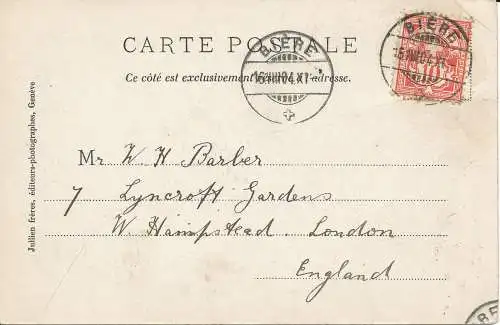 CARTE POSTALE
Ce côté est exclusivement réservé à l'adresse.
BIÈRE
BIÈRE
Mr W. H Barber
7 Lyncroft Gardens
W. Hampstead. London
England
Jullien frères, éditeurs-photographes, Genève